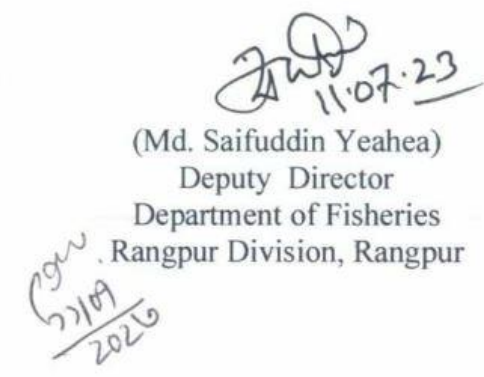 11.07.23
(Md. Saifuddin Yeahea)
Deputy Director
Department of Fisheries
Rangpur Division, Rangpur